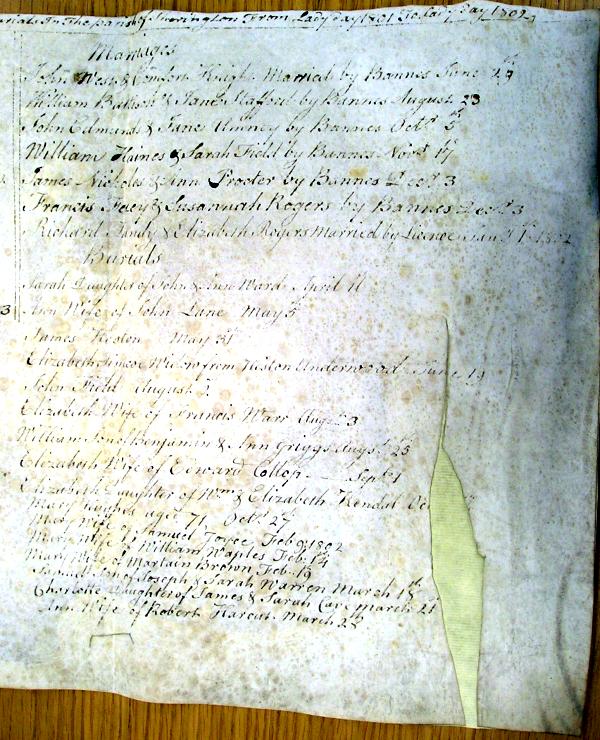 In the parish of From Ladyday 1801 To Lady day 1802
Marriages
John West & Knight Married by Bannes June 29
William & Jane Stafford by Bannes August 23
John Edmunds & Janes by Bannes Octr 5
William Haines & Sarah Field by Bannes Novr 17
James Nicholes & Ann Procter by Bannes Decr 3
Francis & Susannah Rogers by Bannes Decr 3
Richard & Elizabeth Rogers Married by Licence Jany 1802
Burials
Sarah Daughter of John & Ann Ward April 11
3 Ann Wife of John Lane May 5th
James May 31st
Elizabeth Widow from Underwood June 19
John Field August
Elizabeth Wife of Francis Warr Augst 3
William Son of Benjamin & Ann Griggs Augst 23
Elizabeth Wife of Edward Collop Septr 1
Elizabeth Daughter of Wm & Elizabeth Kendal Oct
Mary Hughes aged 71 Octr 27th
Wife of Samuel Joyce Feb 9 1802
of William Waples Feb. 14
Mary Wife of Martain Brown Feb. 19
Samuel Son of Joseph & Sarah Warren March 18th
Charlotte Daughter of James & Sarah March 21st
Ann Wife of Robert March 28